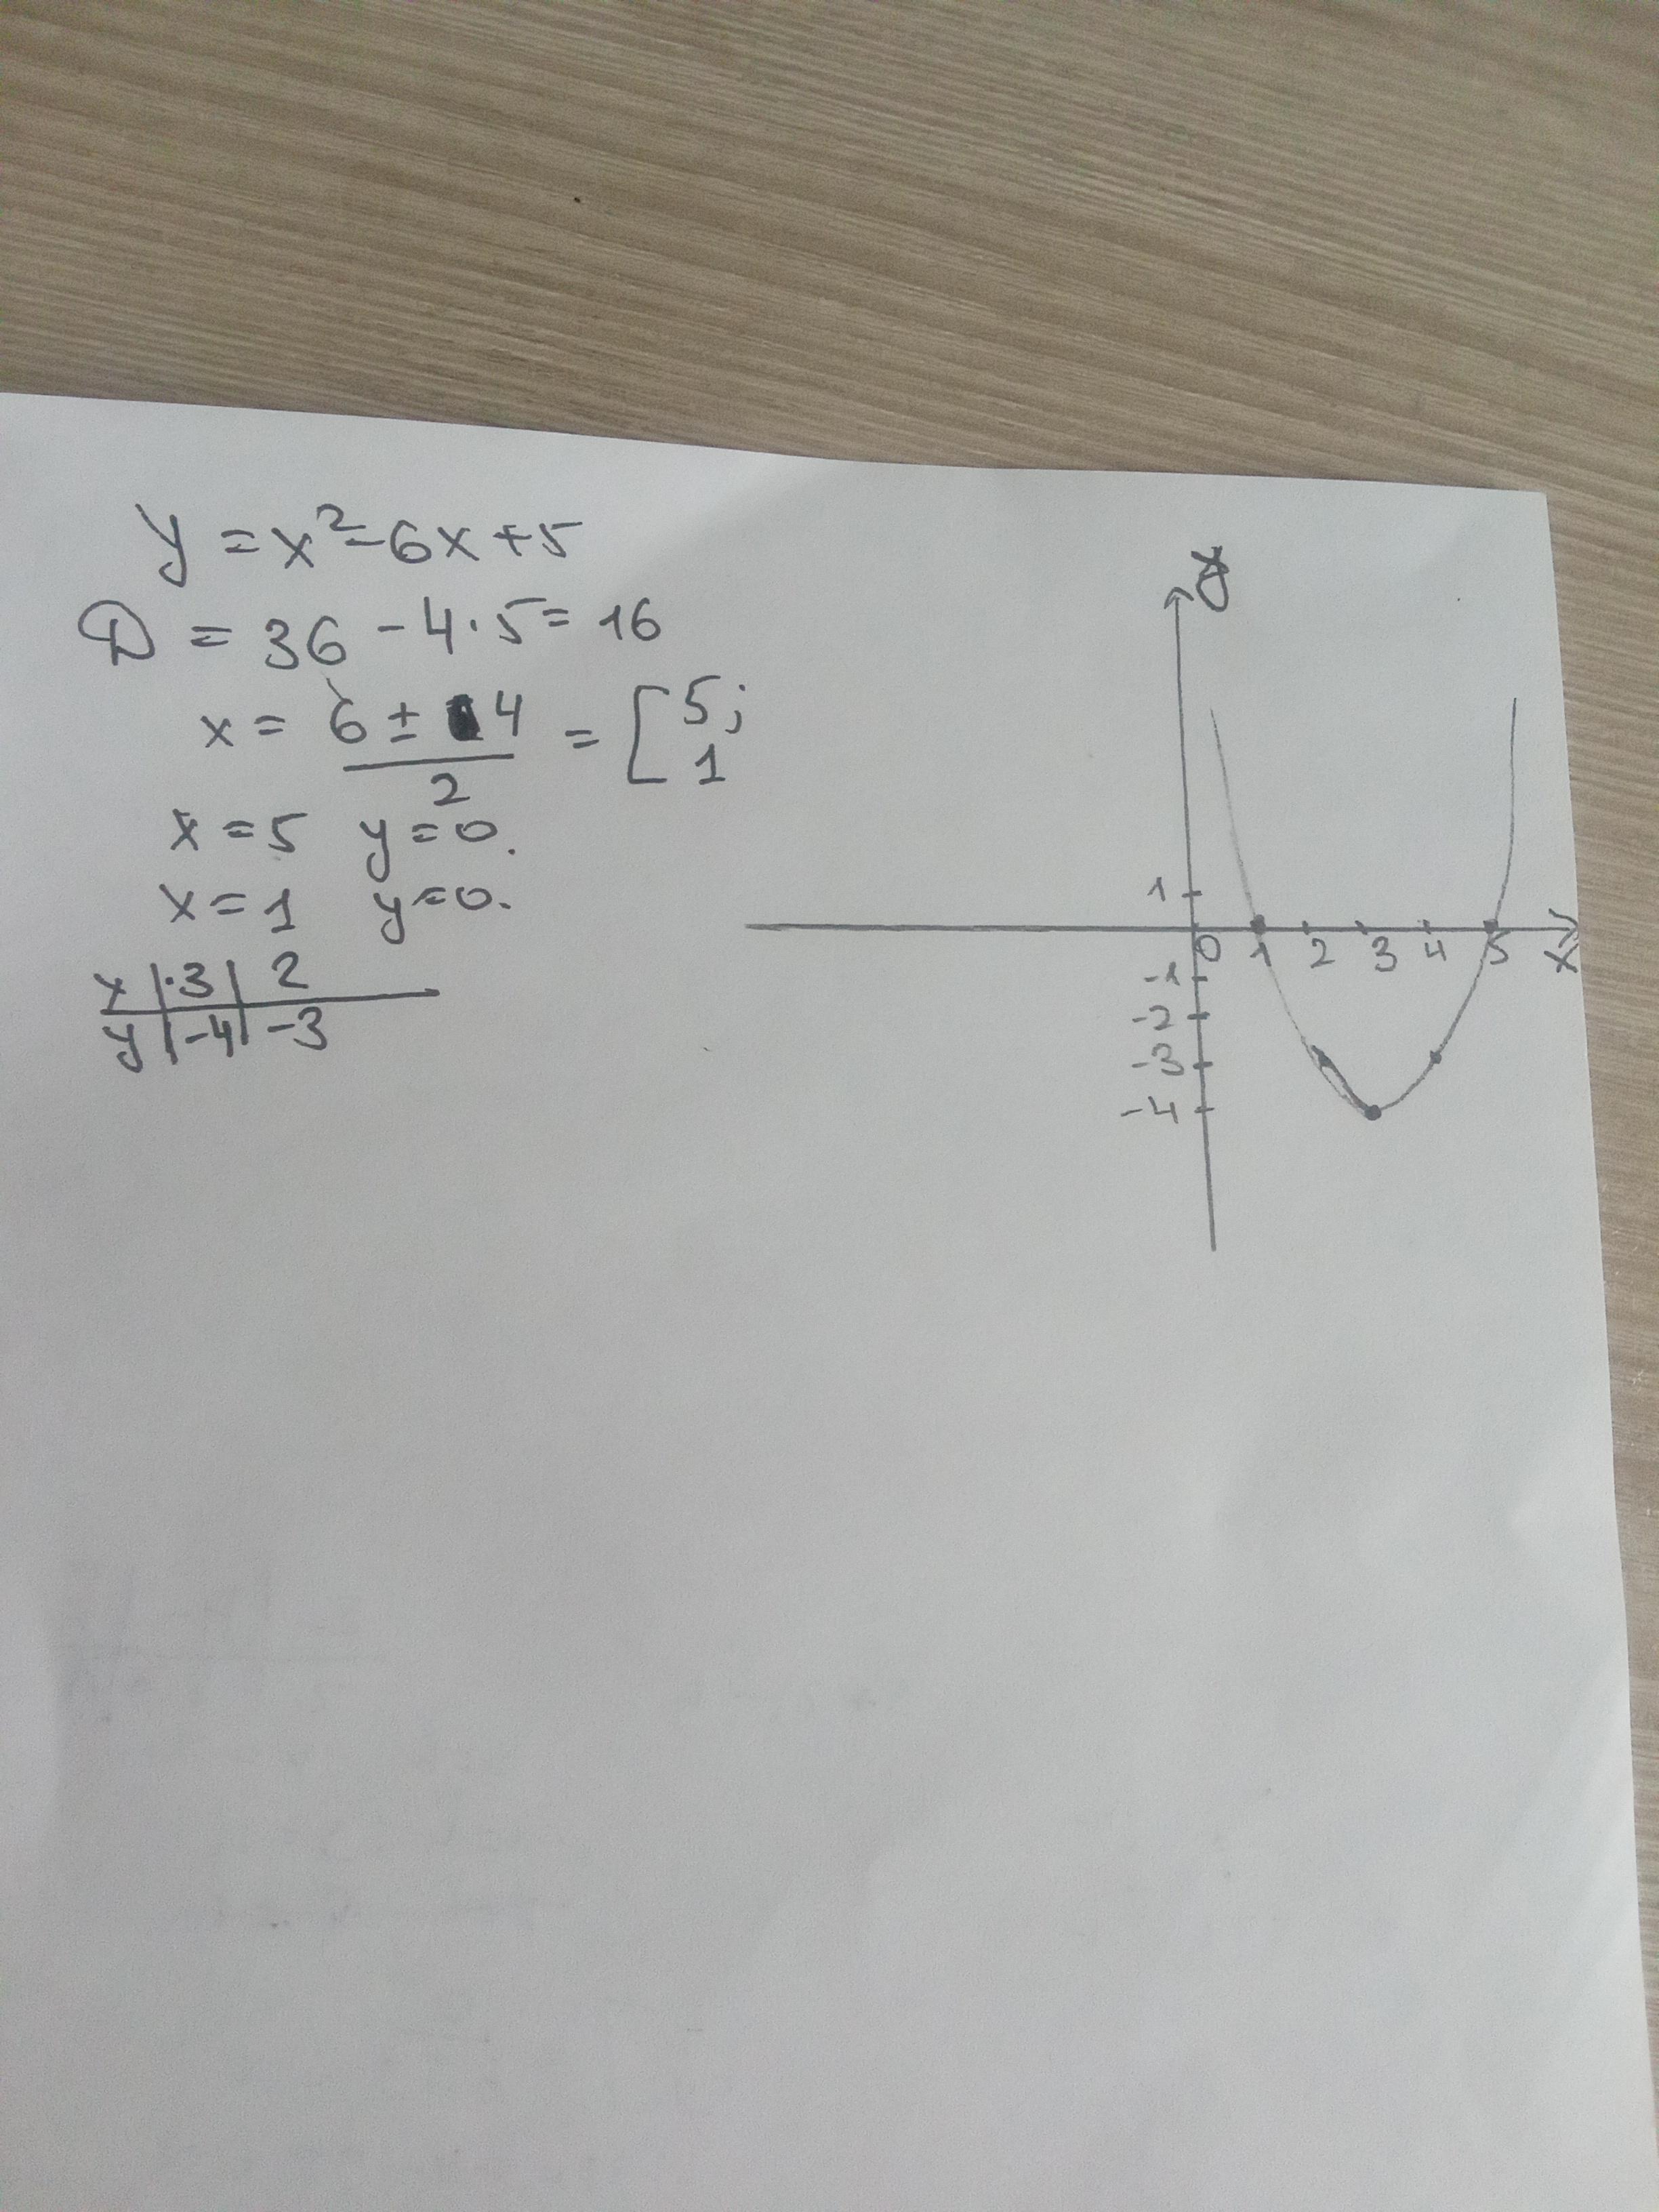 y = x² - 6x + 5
D = 36 - 4·5 = 16
x = 6 ± 4 = [ 5;
2 1
x = 5 y = 0.
x = 1 y = 0.
x | 3 | 2
y | -4 | -3
y
1
0 1 2 3 4 5 x
-1
-2
-3
-4